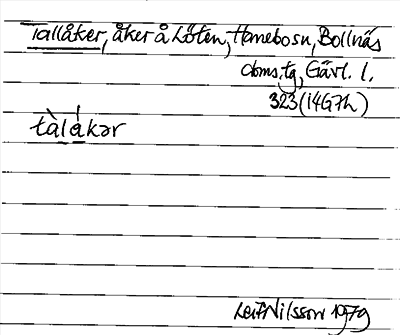 Tallåker, åker å Löten, Hamebosn, Bollnäs
obms.tg, Gävl. l.
323 (14G7h)
tàlákər
Leif Nilsson 1979